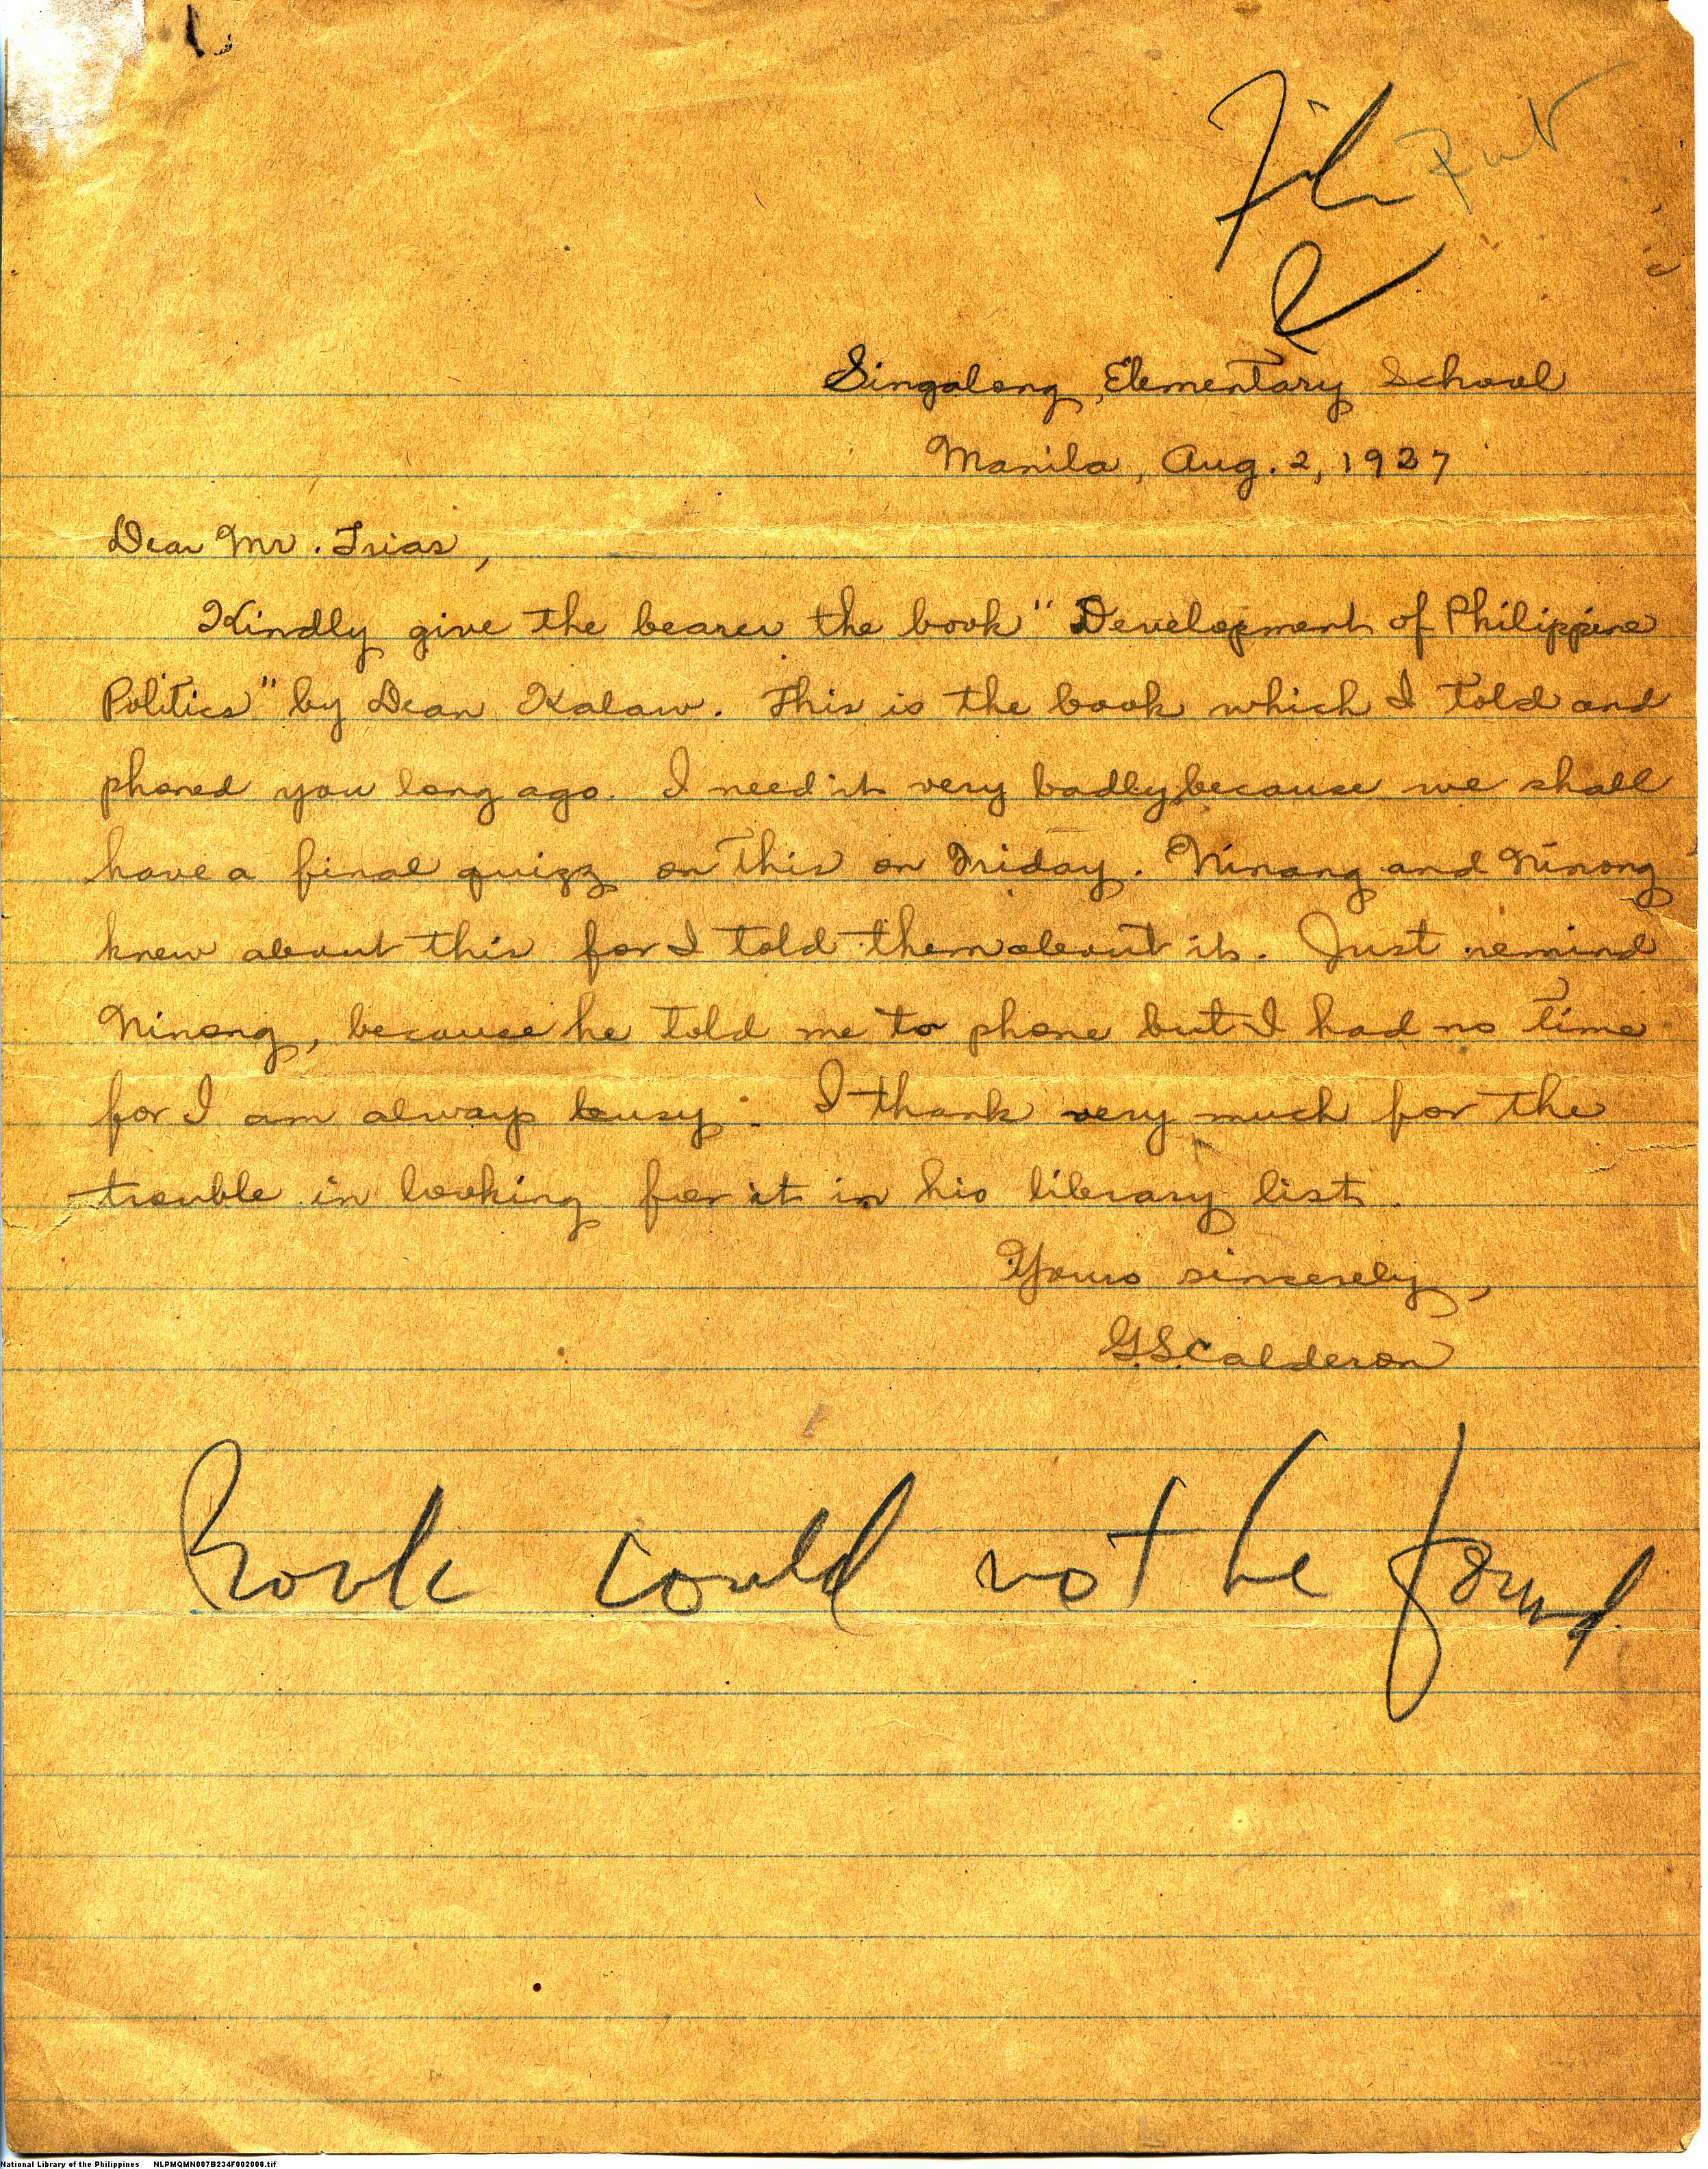 File
Singalong Elementary School
Manila, Aug. 2, 1937
Dear Mr. Trias,
Kindly give the bearer the book "Development of Philippine
Politics" by Dean Kalaw. This is the book which I told and
phoned you long ago. I need it very badly, because we shall
have a final quizz on this on Friday. Ninang and Ninong
knew about this for I told them about it. Just remind
Ninong, because he told me to phone but I had no time
for I am always busy. I thank very much for the
trouble in looking for it in his library list.
Yours sincerely,
G.S. Calderon
Book could not be found
National Library of the Philippines NLPMQMN007B234F002008.tif